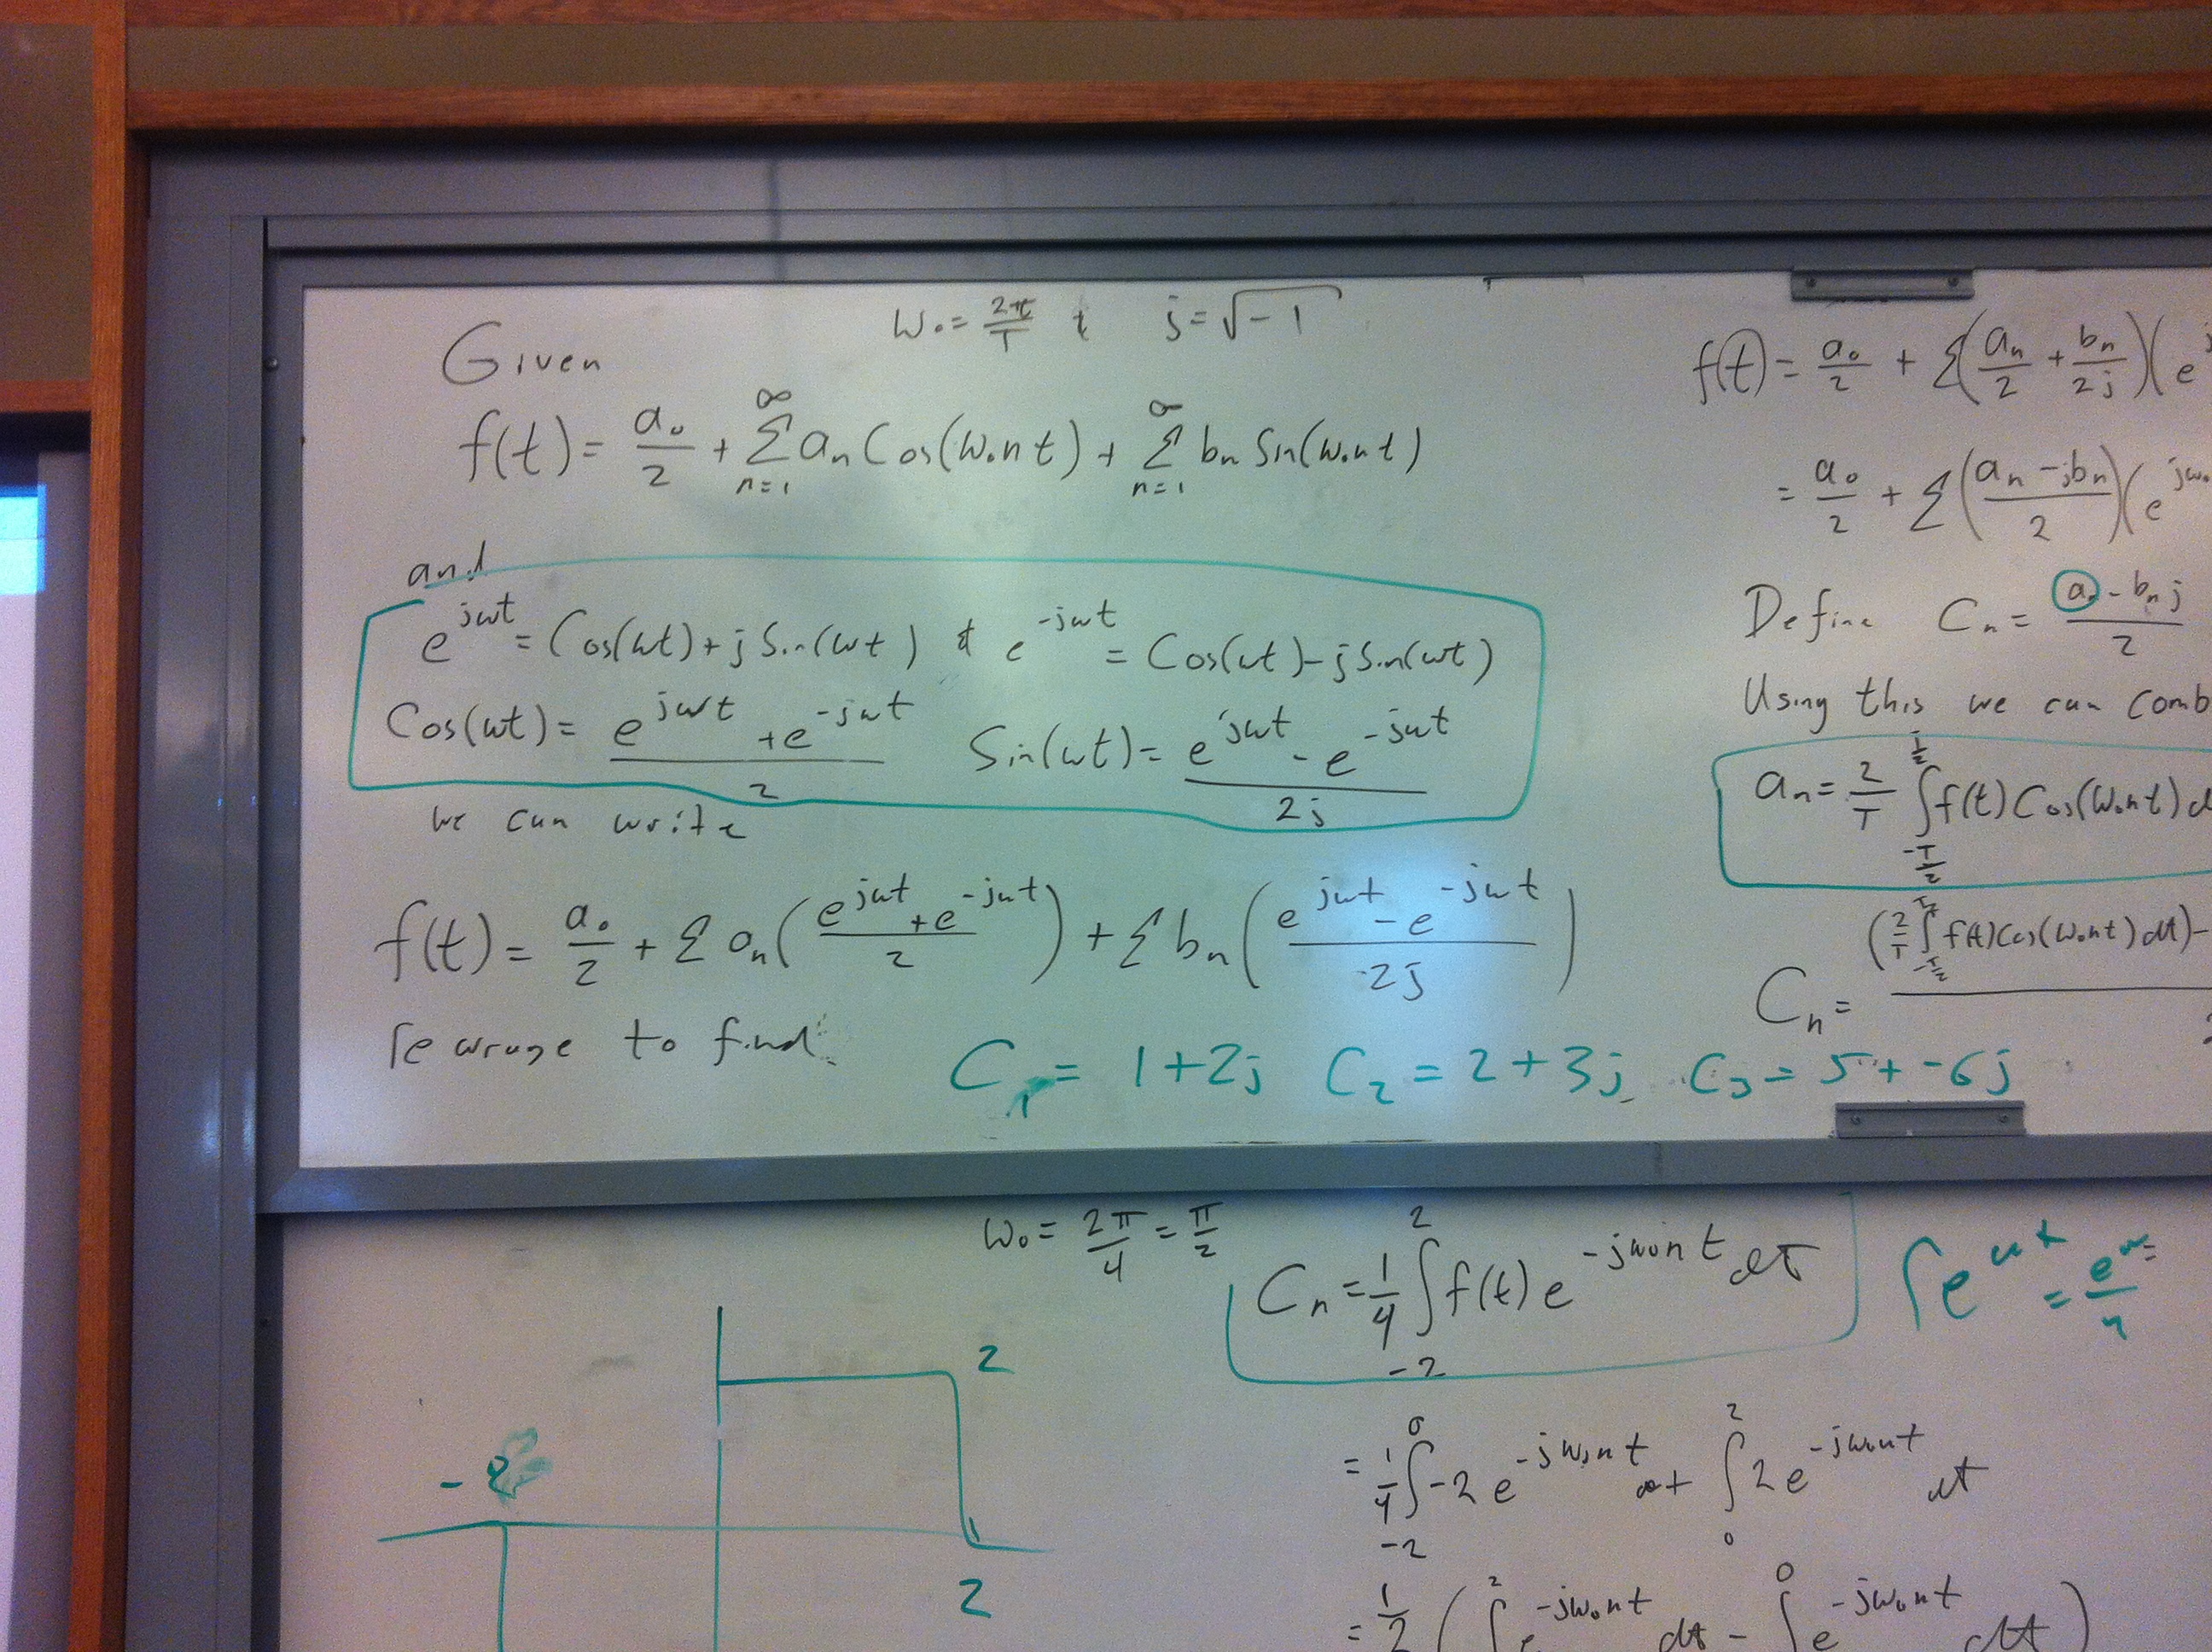 Given
ω₀ = 2π/T & j = √-1
f(t) = a₀/2 + ∑_{n=1}^{∞} aₙ Cos(ω₀nt) + ∑_{n=1}^{∞} bₙ Sin(ω₀nt)
and
e^{jωt} = Cos(ωt) + j Sin(ωt) & e^{-jωt} = Cos(ωt) - j Sin(ωt)
Cos(ωt) = (e^{jωt} + e^{-jωt})/2 Sin(ωt) = (e^{jωt} - e^{-jωt})/2j
we can write
f(t) = a₀/2 + ∑ aₙ((e^{jωt} + e^{-jωt})/2) + ∑ bₙ((e^{jωt} - e^{-jωt})/2j)
rearange to find
C₁ = 1+2j C₂ = 2+3j C₃ = 5+-6j
f(t) = a₀/2 + ∑(aₙ/2 + bₙ/2j)(e^j
= a₀/2 + ∑((aₙ - jbₙ)/2)(e^{jω₀
Define Cₙ = (aₙ - bₙj)/2
Using this we can comb
aₙ = 2/T ∫_{-T/2}^{T/2} f(t) Cos(ω₀nt) d
Cₙ = (2/T ∫_{-T/2}^{T/2} f(t) Cos(ω₀nt) dt) -
ω₀ = 2π/4 = π/2
Cₙ = 1/4 ∫_{-2}^{2} f(t) e^{-jω₀nt} dt
= 1/4 ∫_{-2}^{0} -2 e^{-jω₀nt} + ∫_{0}^{2} 2 e^{-jω₀nt} dt
= 1/2 (∫^{2} e^{-jω₀nt} dt - ∫^{0} e^{-jω₀nt} dt)
2
-2
2